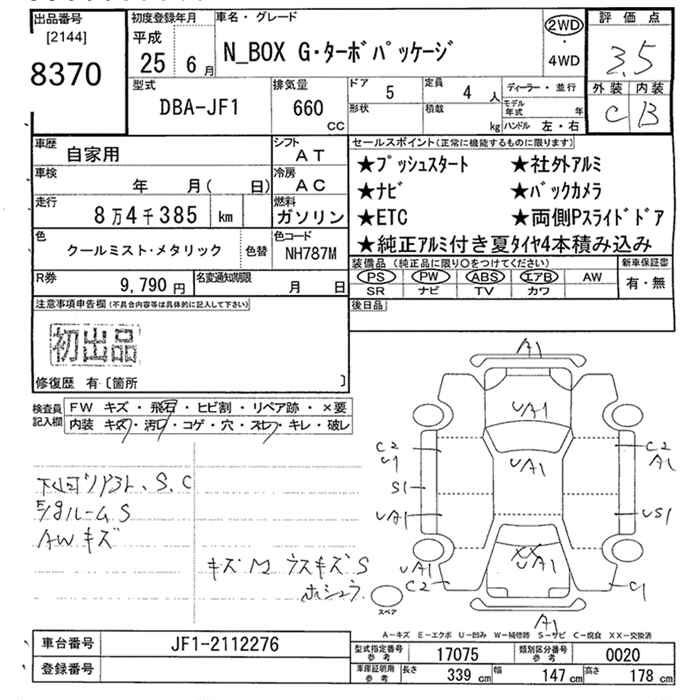 出品番号
[2144]
8370
初度登録年月
平成
25 6月
車名・グレード
N_BOX G・ターボパッケージ
2WD
・
4WD
評価点
3.5
外装 内装
C B
型式
DBA-JF1
排気量
660
CC
ドア 5
定員 4 人
形状
積載
kg
ディーラー・並行
モデル年式 年
ハンドル 左・右
車歴
自家用
シフト
AT
車検
年 月( 日)
冷房
AC
走行
8万4千385 km
燃料
ガソリン
色
クールミスト・メタリック
色替
色コード
NH787M
R券
9,790円
名変通知期限
月 日
セールスポイント(正常に機能するものに限ります)
★プッシュスタート ★社外アルミ
★ナビ ★バックカメラ
★ETC ★両側Pスライドドア
★純正アルミ付き夏タイヤ4本積み込み
装備品(純正品に限り○をつけてください)
PS PW ABS エアB AW
SR ナビ TV カワ
新車保証書
有・無
後日品
注意事項申告欄(不具合内容等は具体的に記入して下さい)
初出品
修復歴 有〔箇所 〕
検査員記入欄
FW キズ・飛石・ヒビ割・リペア跡・×要
内装 キズ・汚レ・コゲ・穴・スレ・キレ・破レ
S.C
ルームS
AWキズ
キズM ウスキズS
A1
UA1
UA1
C2
U1
S1
UA1
C2
A1
US1
XX
UA1
UA1
C2
C1
A1
スペア
A-キズ E-エクボ U-凹み W-補修跡 S-サビ C-腐食 XX-交換済
車台番号
JF1-2112276
登録番号
型式指定番号
参考
17075
類別区分番号
参考
0020
車庫証明用
参考
長さ 339 cm
幅 147 cm
高さ 178 cm